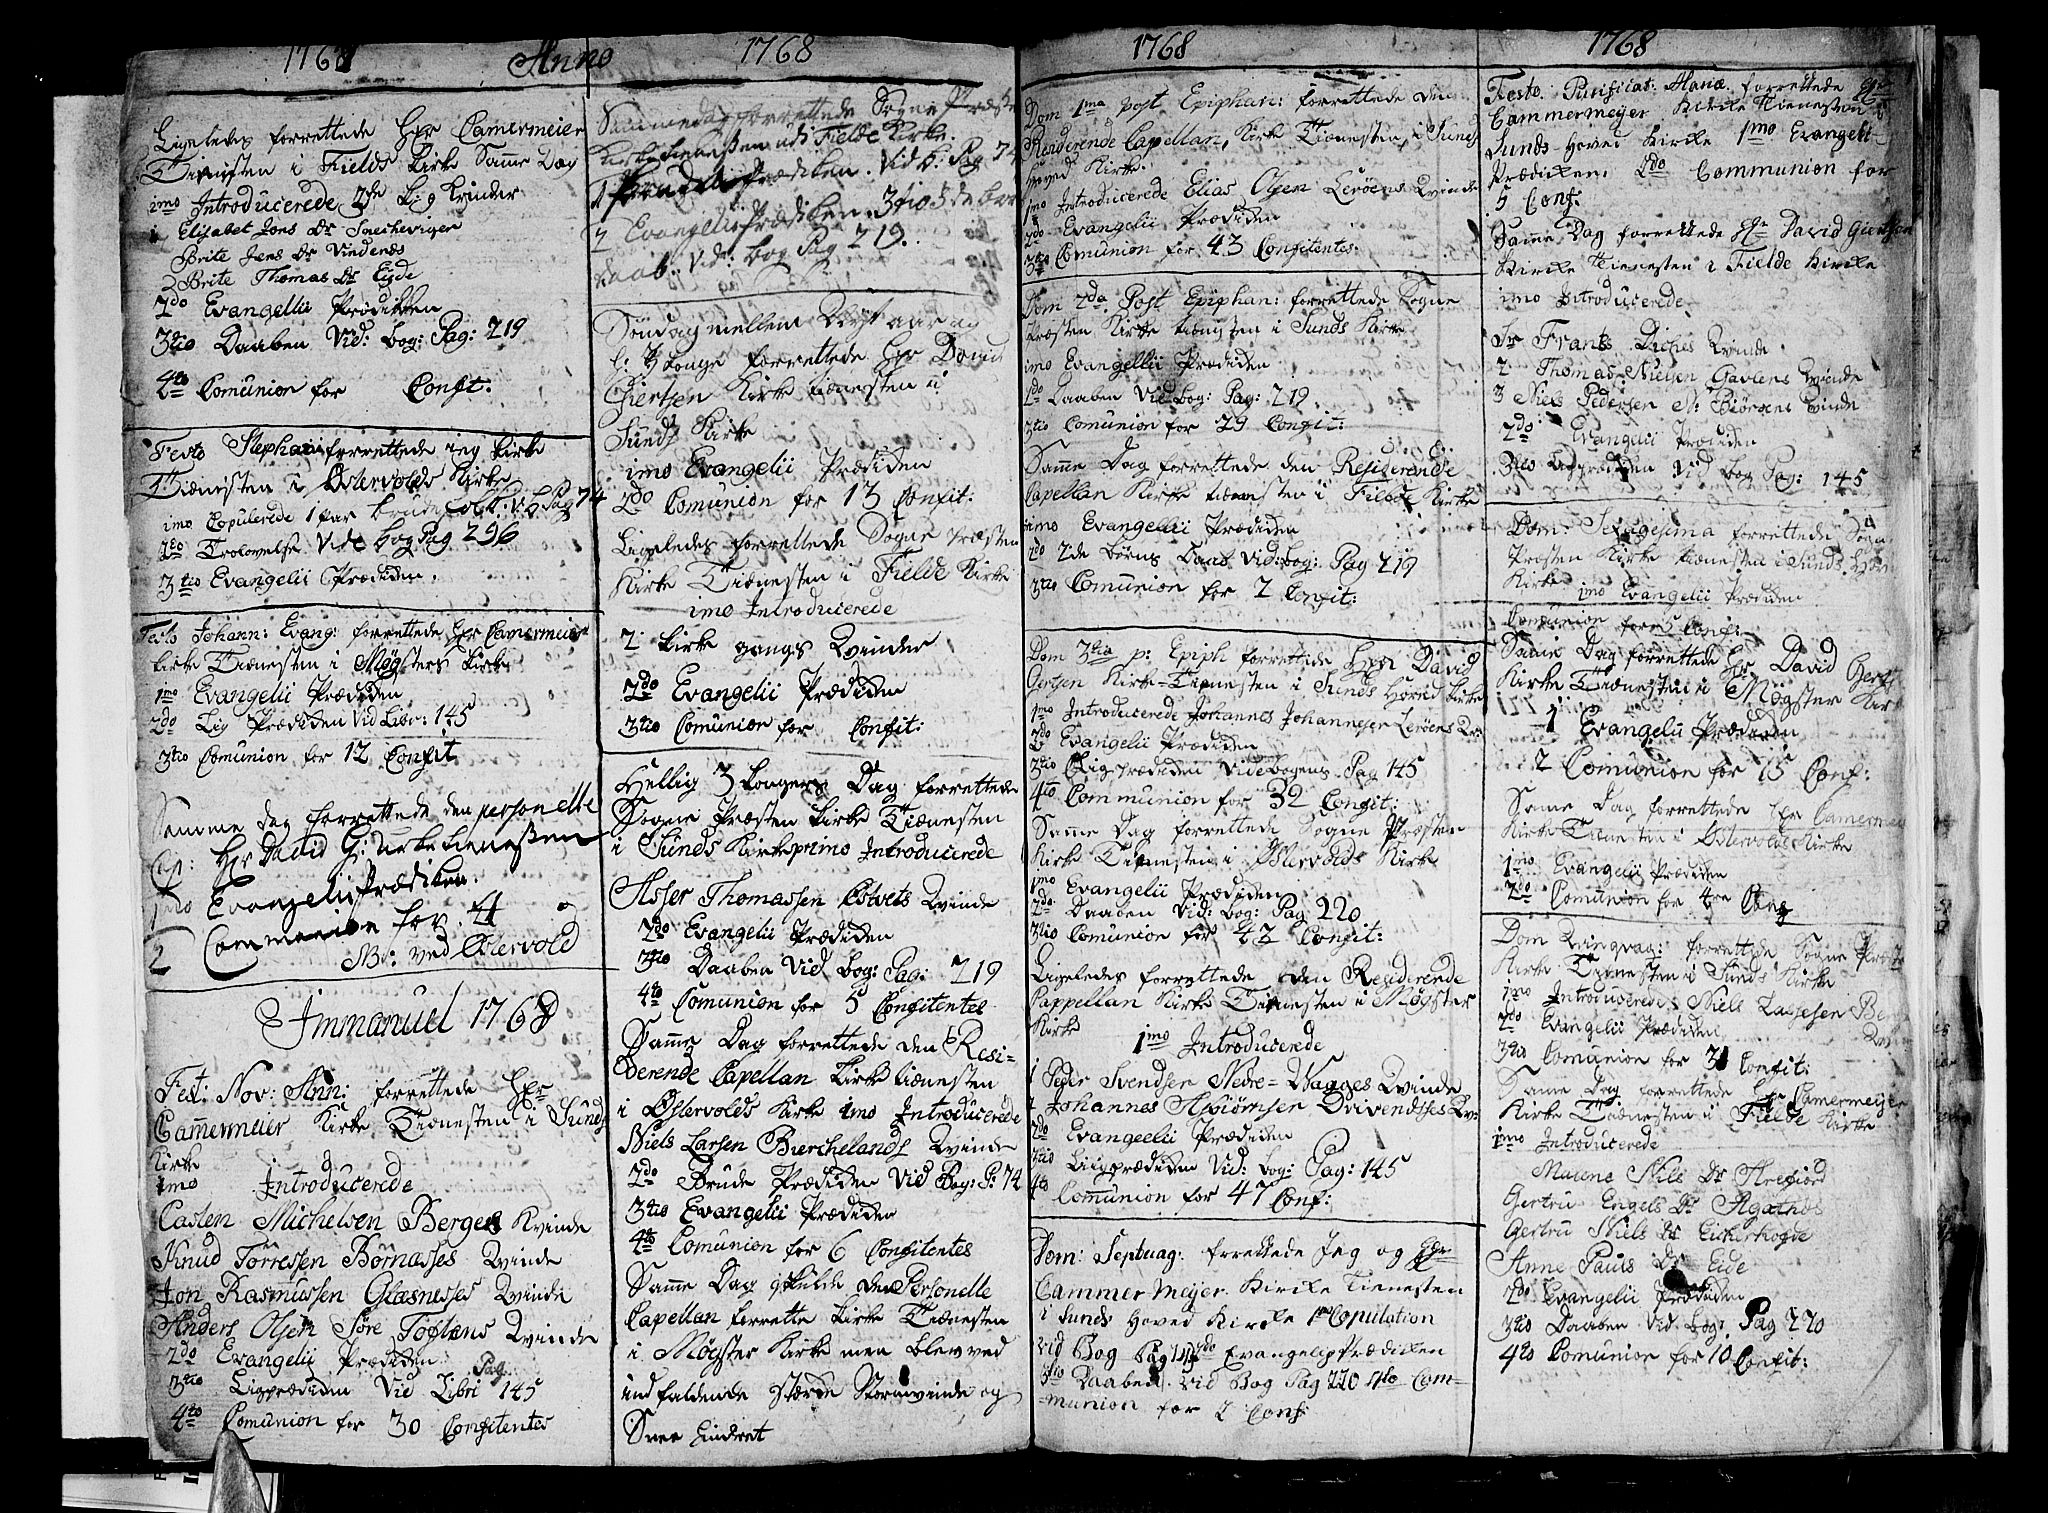 1768
Anno
Ligeledes forrettede Hr Camermeier
Tienisten i Fields Kirke Samme Dag
imo Introducerede 2de Lig Kvinder
1 Elisabet Jons Dr
Brite Jens Dr Vindenes
2 Brite Thomas Dr Eyde
2do Evangelii Prædiken
3tio Daaben Vid: bog: Pag: 219
4to Comunion for Confit:
Festo Stephani forrettede ieg Kirke
Tiænesten i Østervolds Kirke
imo Copulerede 1 par brude folk v. b. Pag 74
2do Trolovelse Vide bog Pag 296
3tio Evangelii Prædiken.
Festo Johann: Evang: forrettede Hr Camermeier
Kirke Tiænesten i Møgsters Kirke
1mo Evangelii Prædiken
2do Lig Prædiken Vid Libr: 145
3tio Comunion for 12 Confit
Samme dag forrettede den personelle
Cap: Hr David G: Kirketienesten
1mo Evangelii Prædiken
2 Communion for 4
NB: ved Østervold
Immanuel 1768
Fest: Nov: Ann: forrettede Hr
Camermeier Kirke Tiænesten i Sunds
Kirke
imo Introducerede
Casten Michelsen Berges Kvinde
Knud Torresen Børnæsses Qvinde
Jon Rasmussen Glæsnesses Qvinde
Anders Olsen Søre Toftens Qvinde
2do Evangelii Prædiken
3tio Ligprædiken Vid Libri Pag 145
4to Comunion for 30 Confitentes
1768
Sammedag forrettede Sogne Præsten
Kirketienesten udi Fielde Kirke.
1 Prædiken. Vid b. Pag 74
2 Evangelii Prædiken. 3tio 3de børn
daab. Vid: bog Pag 219.
Søndag mellem Nyt aar og
H: 3 Konge forrettede Hr David
Giertsen Kirke tiænesten i
Sunds Kirke
imo Evangelii Prædiken
2do Comunion for 13 Confit:
Ligeledes forrettede Sogne Præsten
Kirke Tiænesten i Fielde Kirke
imo Introducerede
2 Kirke gangs Qvinder
2do Evangelii Prædiken
3tio Comunion for Confit:
Hellig 3 Kongers Dag forrettede
Sogne Præsten Kirke Tiænesten
i Sunds Kirke primo Introducerede
Asser Thomassen Østvets Qvinde
2do Evangelii Prædiken
3tio Daaben Vid bog: Pag: 219
4to Comunion for 5 Confitentes
Samme Dag forrettede den Resi-
derende Capellan Kirke tiænesten
i Østervolds Kirke imo Introducerede
Niels Larsen Bierchelands Qvinde
2do Brude Prædiken Vid Bog: P: 74
3tio Evangelii Prædiken
4to Comunion for 6 Confitentes
Samme Dag skulde den Personelle
Capellan forrette Kirke Tiænesten
i Møgster Kirke men blev ved
indfaldende stærke Stormvinde og
Snee hindret
1768
Dom 1ma post Epiphan: forrettede den
Residerende Capellan, Kirke Tiænesten, i Sunds
Hoved Kirke.
1mo Introducerede Elias Olsen Lerøens Qvinde
2do Evangelii Prædiken
3tio Comunion for 43 Confitentes:
Dom 2da Post Epiphan: forrettede Sogne
Præsten Kirke tiænesten i Sunds Kirke
imo Evangelii Prædiken
2do Daaben Vid bog: Pag: 219
3tio Comunion for 29 Confit:
Samme Dag forrettede den Residerende
Capellan Kirke tiænesten i Fielde Kirke
imo Evangelii Prædiken
2do 2de Børns Daab Vid: bog: Pag 219
3tio Comunion for 2 Confit:
Dom 3tia p: Epiph forrettede Herr David
Gertsen Kirke-Tiænesten i Sunds Hoved Kirke
1mo Introducerede Johannes Johannesen Lerøens Qv:
2do Evangelii Prædiken
3tio Ligprædiken Vide bogens Pag 145
4to Communion for 32 Confit:
Samme Dag forrettede Sogne Præsten
Kirke Tiænesten i Østervolds Kirke
1mo Evangelii Prædiken
2do Daaben Vid: bog: Pag 220
3tio Comunion for 43 Confit:
Ligeledes forrettede den Residerende
Cappellan Kirke Tiænesten i Møgster
Kirke
1mo Introducerede
1 Peder Svendsen Nedre-Wagges Qvinde
2 Johannes Asbiørnsen Qv:
2do Evangeelii Prædiken
3tio Ligprædiken Vid: bog: Pag: 145
4to Comunion for 47 Conf:
Dom: Septuag: forrettede Jeg og Hr
Cammermeyer Kirke Tienesten
i Sunds Hoved Kircke 1mo Copulation
vid Bog Pag 2do Evangelii Prædicken
3tio Daaben vid Bog Pag 220 4to Com-
munion for 2 Conf:
1768
Festo Purificat: Mariæ forrettede Hr
Cammermeyer Kirke Tienesten i
Sunds Hoved Kircke 1mo Evangeli-
Prædicken, 2do Communion for
5 Conf:
Samme Dag forrettede Hr David Giertsen
Kircke Tienesten i Fielde Kircke
imo Introducerede
Sr Frants Qvinde
2 Thomas Nielsen Gavlens Qvinde
3 Niels Pedersen N: Biørøens Qvinde
2do Evangelii Prædiken
3tio Ligprædiken Vid bog Pag: 145
Dom: Sexagesima forrettede Sogne
Præsten Kirke tiænesten i Sunds Hoved
Kirke imo Evangelii Prædiken
Comunion for 5 Conf:
Samme Dag forrettede Hr David Gierts:
Kirke Tiænesten i Møgster Kirke
1 Evangelii Prædiken
2 Comunion for 15 Conf:
Samme Dag forrettede Hr Camermeyer
Kirke Tiænesten i Østervolds Kirke
1mo Evangelii Prædiken
2do Comunion for 4re Conf
Dom Qvinqvag: forrettede Sogne Præsten
Kirke Tiænesten i Sunds Kirke
1mo Introducerede Niels Lassesen
2do Evangelii Prædiken Qvinde
3tio Comunion for 31 Confit:
Samme Dag forrettede Hr Camermeyer
Kirke Tiænesten i Fielde Kirke
imo Introducerede
Marene Nils Dr Strefiord
Gertru Engels Dr Agathes
Gertru Niels Dr Eickerhogde
Anne Pauls Dr Eide
2do Evangelii Prædiken
3tio Daaben Vid bog: Pag 220
4to Comunion for 10 Confit: